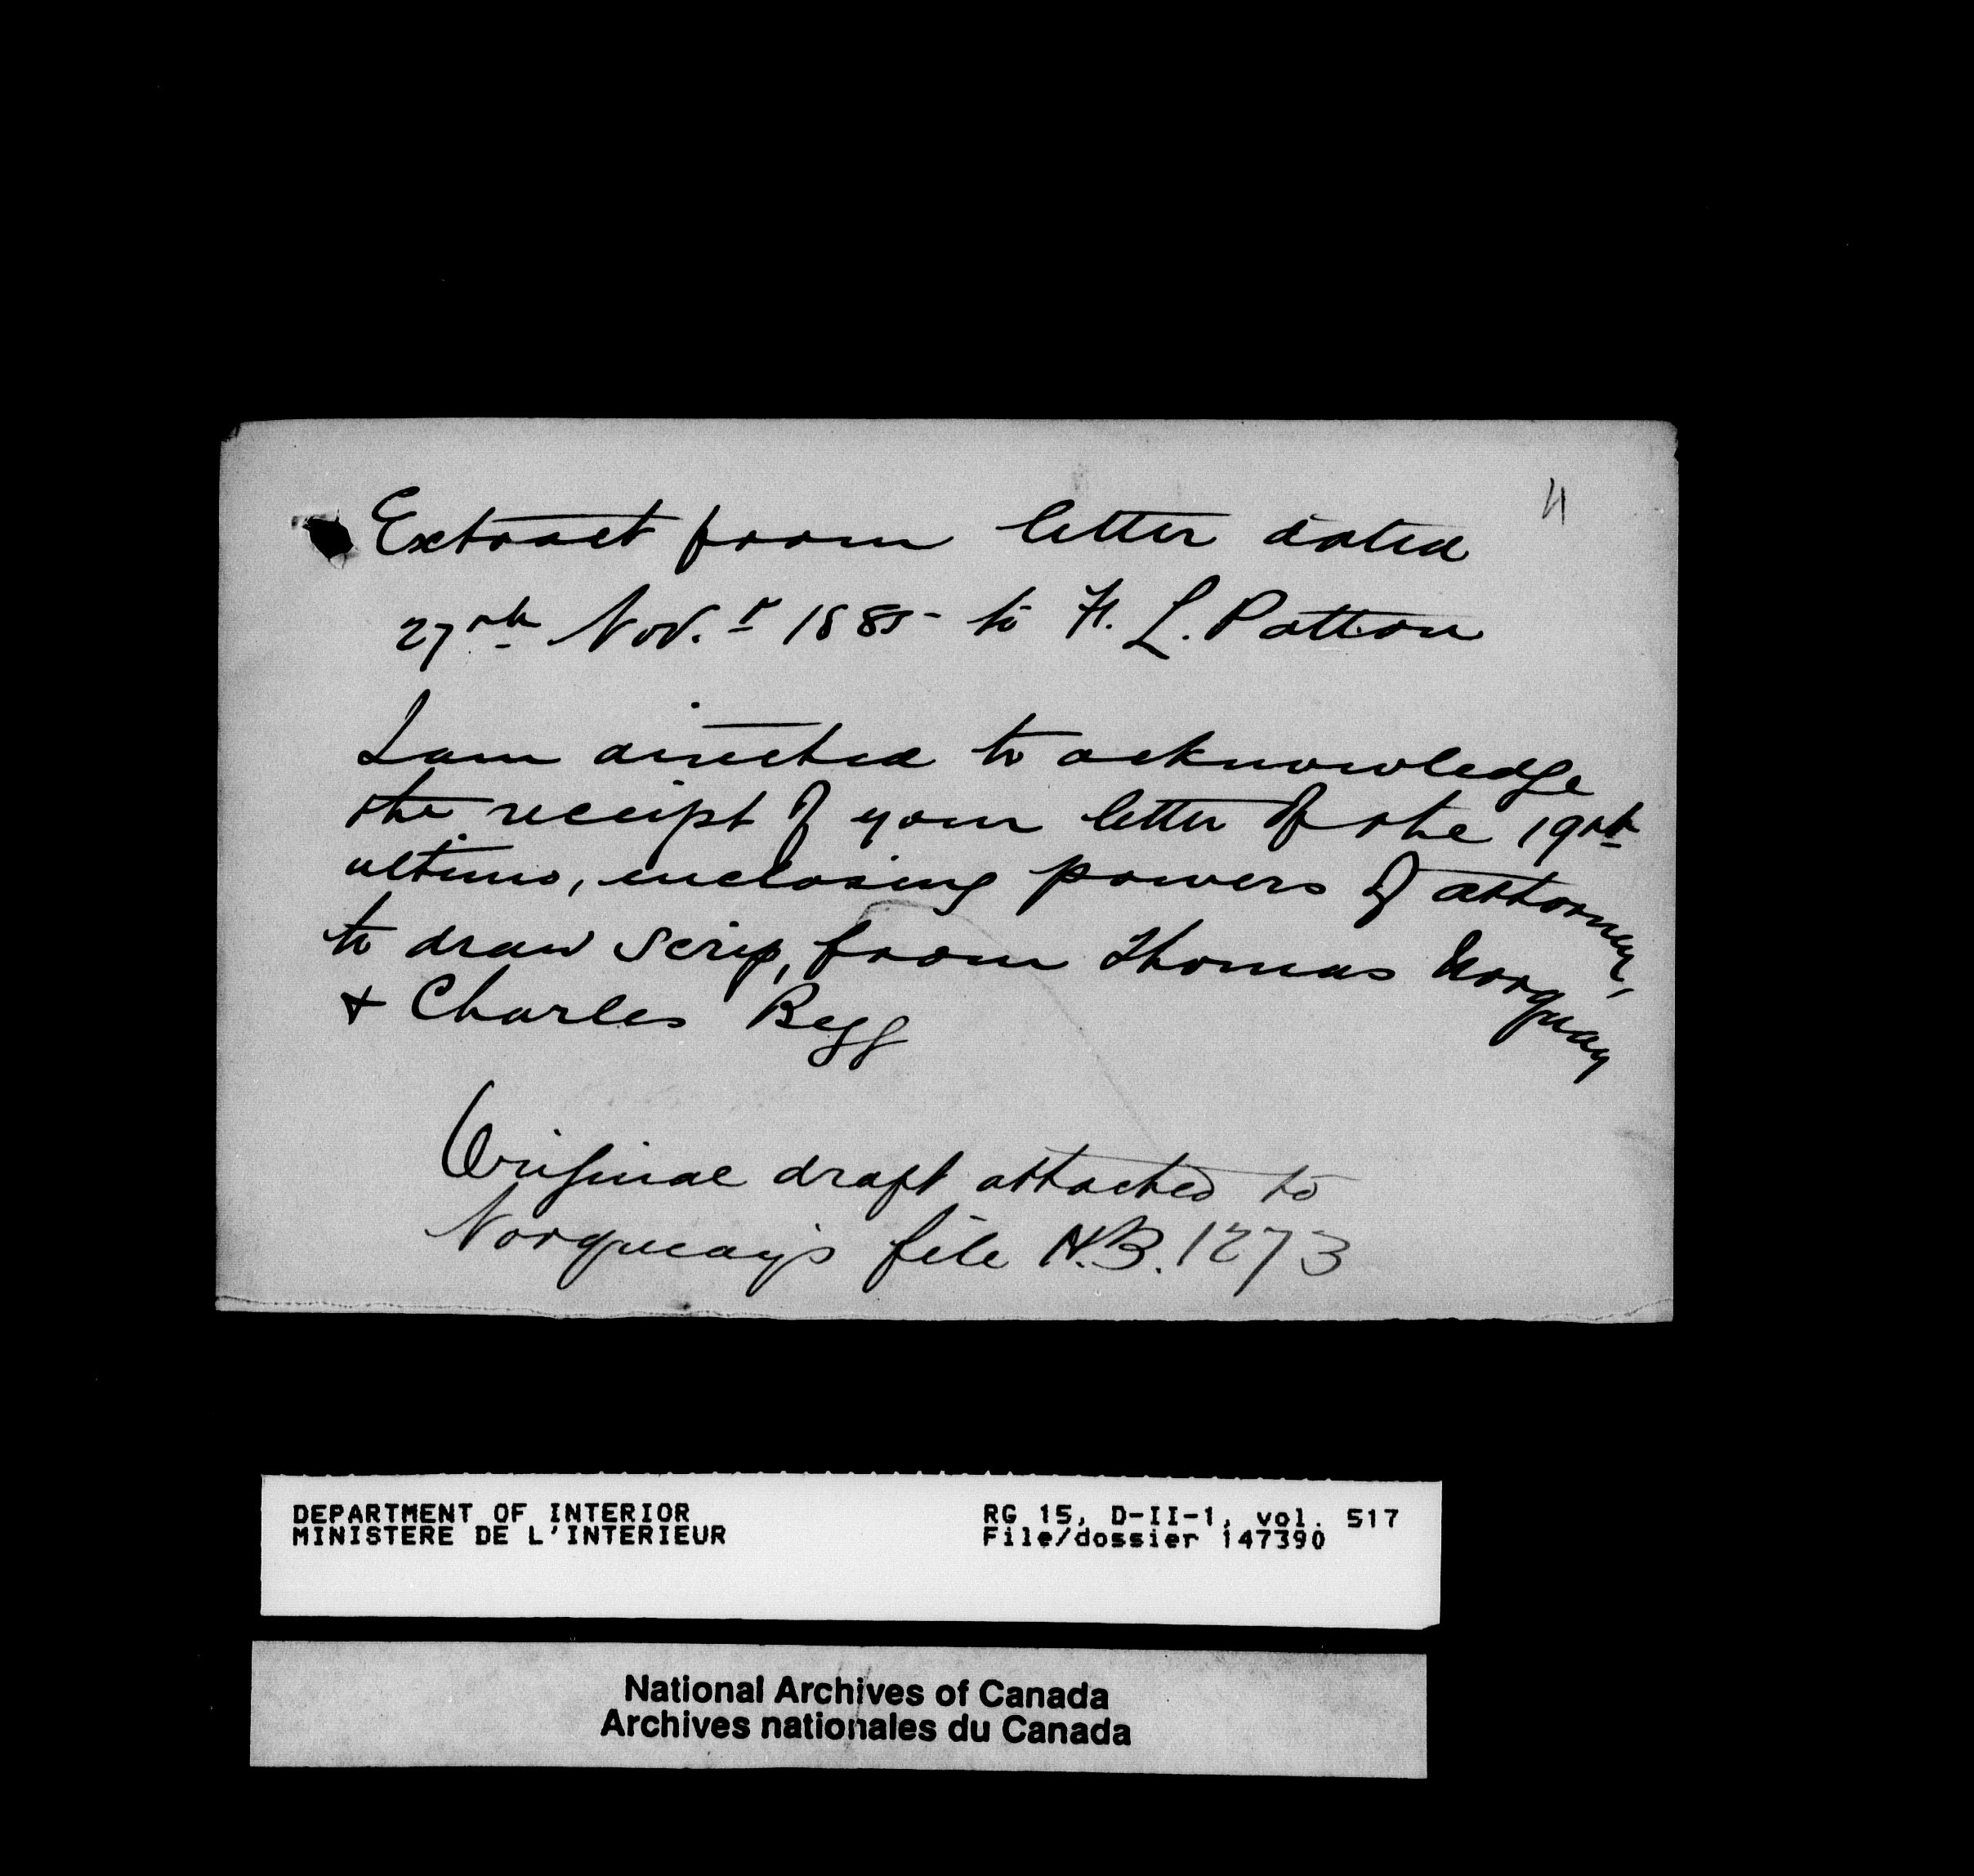 4
Extract from letter dated
27th Nov.r 1885 to F. L. Patton
I am directed to acknowledge
the receipt of your letter of the 19th
ultimo, enclosing powers of attorney,
to draw scrip, from Thomas Norquay
& Charles Begg
Original draft attached to
Norquay's file N.B. 1273
DEPARTMENT OF INTERIOR
MINISTERE DE L'INTERIEUR
RG 15, D-II-1, vol. 517
File/dossier 147390
National Archives of Canada
Archives nationales du Canada